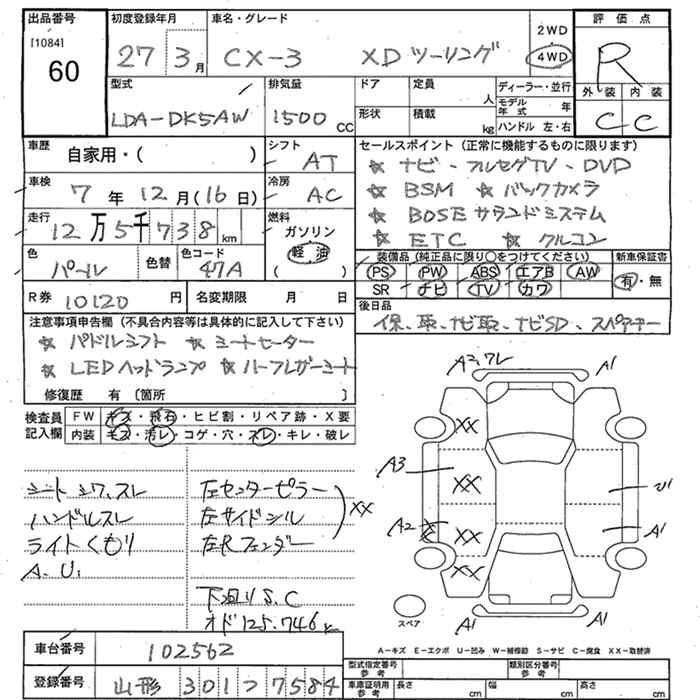 出品番号 初度登録年月 車名・グレード 2WD 評価点
[1084] 60 27 3月 CX-3 XD ツーリング 4WD R
型式 排気量 ドア 定員 ディーラー・並行 外装 内装
LDA-DK5AW 1500 CC 人 モデル年式 年 C C
形状 積載 kg ハンドル 左・右
車歴 自家用・( ) シフト AT セールスポイント (正常に機能するものに限ります)
☆ ナビ・フルセグTV・DVD
車検 7年12月(16日) 冷房 AC ☆ BSM ☆ バックカメラ
走行 12万5千738km 燃料 ガソリン 軽油 ( ) ☆ BOSEサラウンドシステム
☆ ETC ☆ クルコン
色 パール 色替 色コード 47A 装備品 (純正品に限り○をつけてください) 新車保証書
PS PW ABS エアB AW 有・無
SR ナビ TV カワ
R券 10120円 名変期限 月 日 後日品
保、取、ナビ取、ナビSD、スペアキー
注意事項申告欄 (不具合内容等は具体的に記入して下さい)
☆ パドルシフト ☆ シートヒーター
☆ LEDヘッドランプ ☆ ハーフレザーシート
修復歴 有 〔箇所 〕
検査員記入欄 FW キズ・飛石・ヒビ割・リペア跡・X要
内装 キズ・汚レ・コゲ・穴・スレ・キレ・破レ
シートシワ、スレ 左センターピラー
ハンドルスレ 左サイドシル XX
ライトくもり 左Rフェンダー
A.U.
下廻りS.C
オド125.746k
A2,ワレ A1
XX
A3 XX
A2 XX A1
XX
A1 A1
スペア
A-キズ E-エクボ U-凹み W-補修跡 S-サビ C-腐食 XX-取替済
車台番号 102562
登録番号 山形 301つ7584
型式指定番号 参考 類別区分番号 参考
車庫証明用 参考 長さ cm 幅 cm 高さ cm